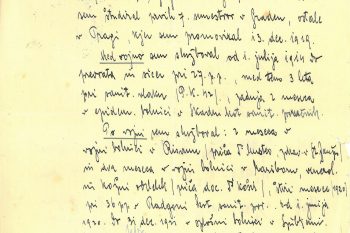 sem študiral prvih 7 semestrov v Gradcu, ostale
v Pragi, kjer sem promoviral 13. dec. 1919.
Med vojno sem služboval od 1. julija 1915 do
prevrata in sicer pri 27. p.p., med tem 3 leta
pri sanit. vlaku (P.K. 42/, zadnja 2 meseca
v epidem. bolnici v Skadru kot sanit. praktik.
Po vojni sem služboval: 2 meseca v
vojni bolnici v Risanu/
in dva meseca v vojni bolnici v Mariboru, moral.
in kožni oddelek/priča doc. Dr Košir/, štiri mesece 1920/
pri 36 pp v Radgoni kot sanit. por. od 1. junija
1920. do 31 dec. 1921 v splošni bolnici v Ljubljani.